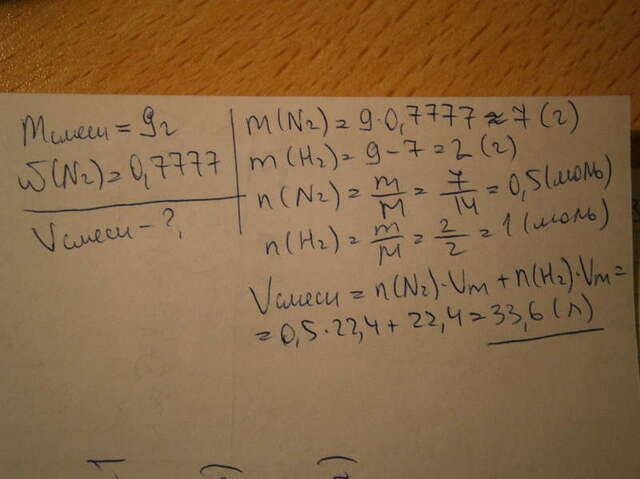 mсмеси = 9г
ω(N₂) = 0,7777
Vсмеси - ?
m(N₂) = 9·0,7777 ≈ 7 (г)
m(H₂) = 9-7 = 2 (г)
n(N₂) = m/M = 7/14 = 0,5 (моль)
n(H₂) = m/M = 2/2 = 1 (моль)
Vсмеси = n(N₂)·Vm + n(H₂)·Vm =
= 0,5·22,4 + 22,4 = 33,6 (л)